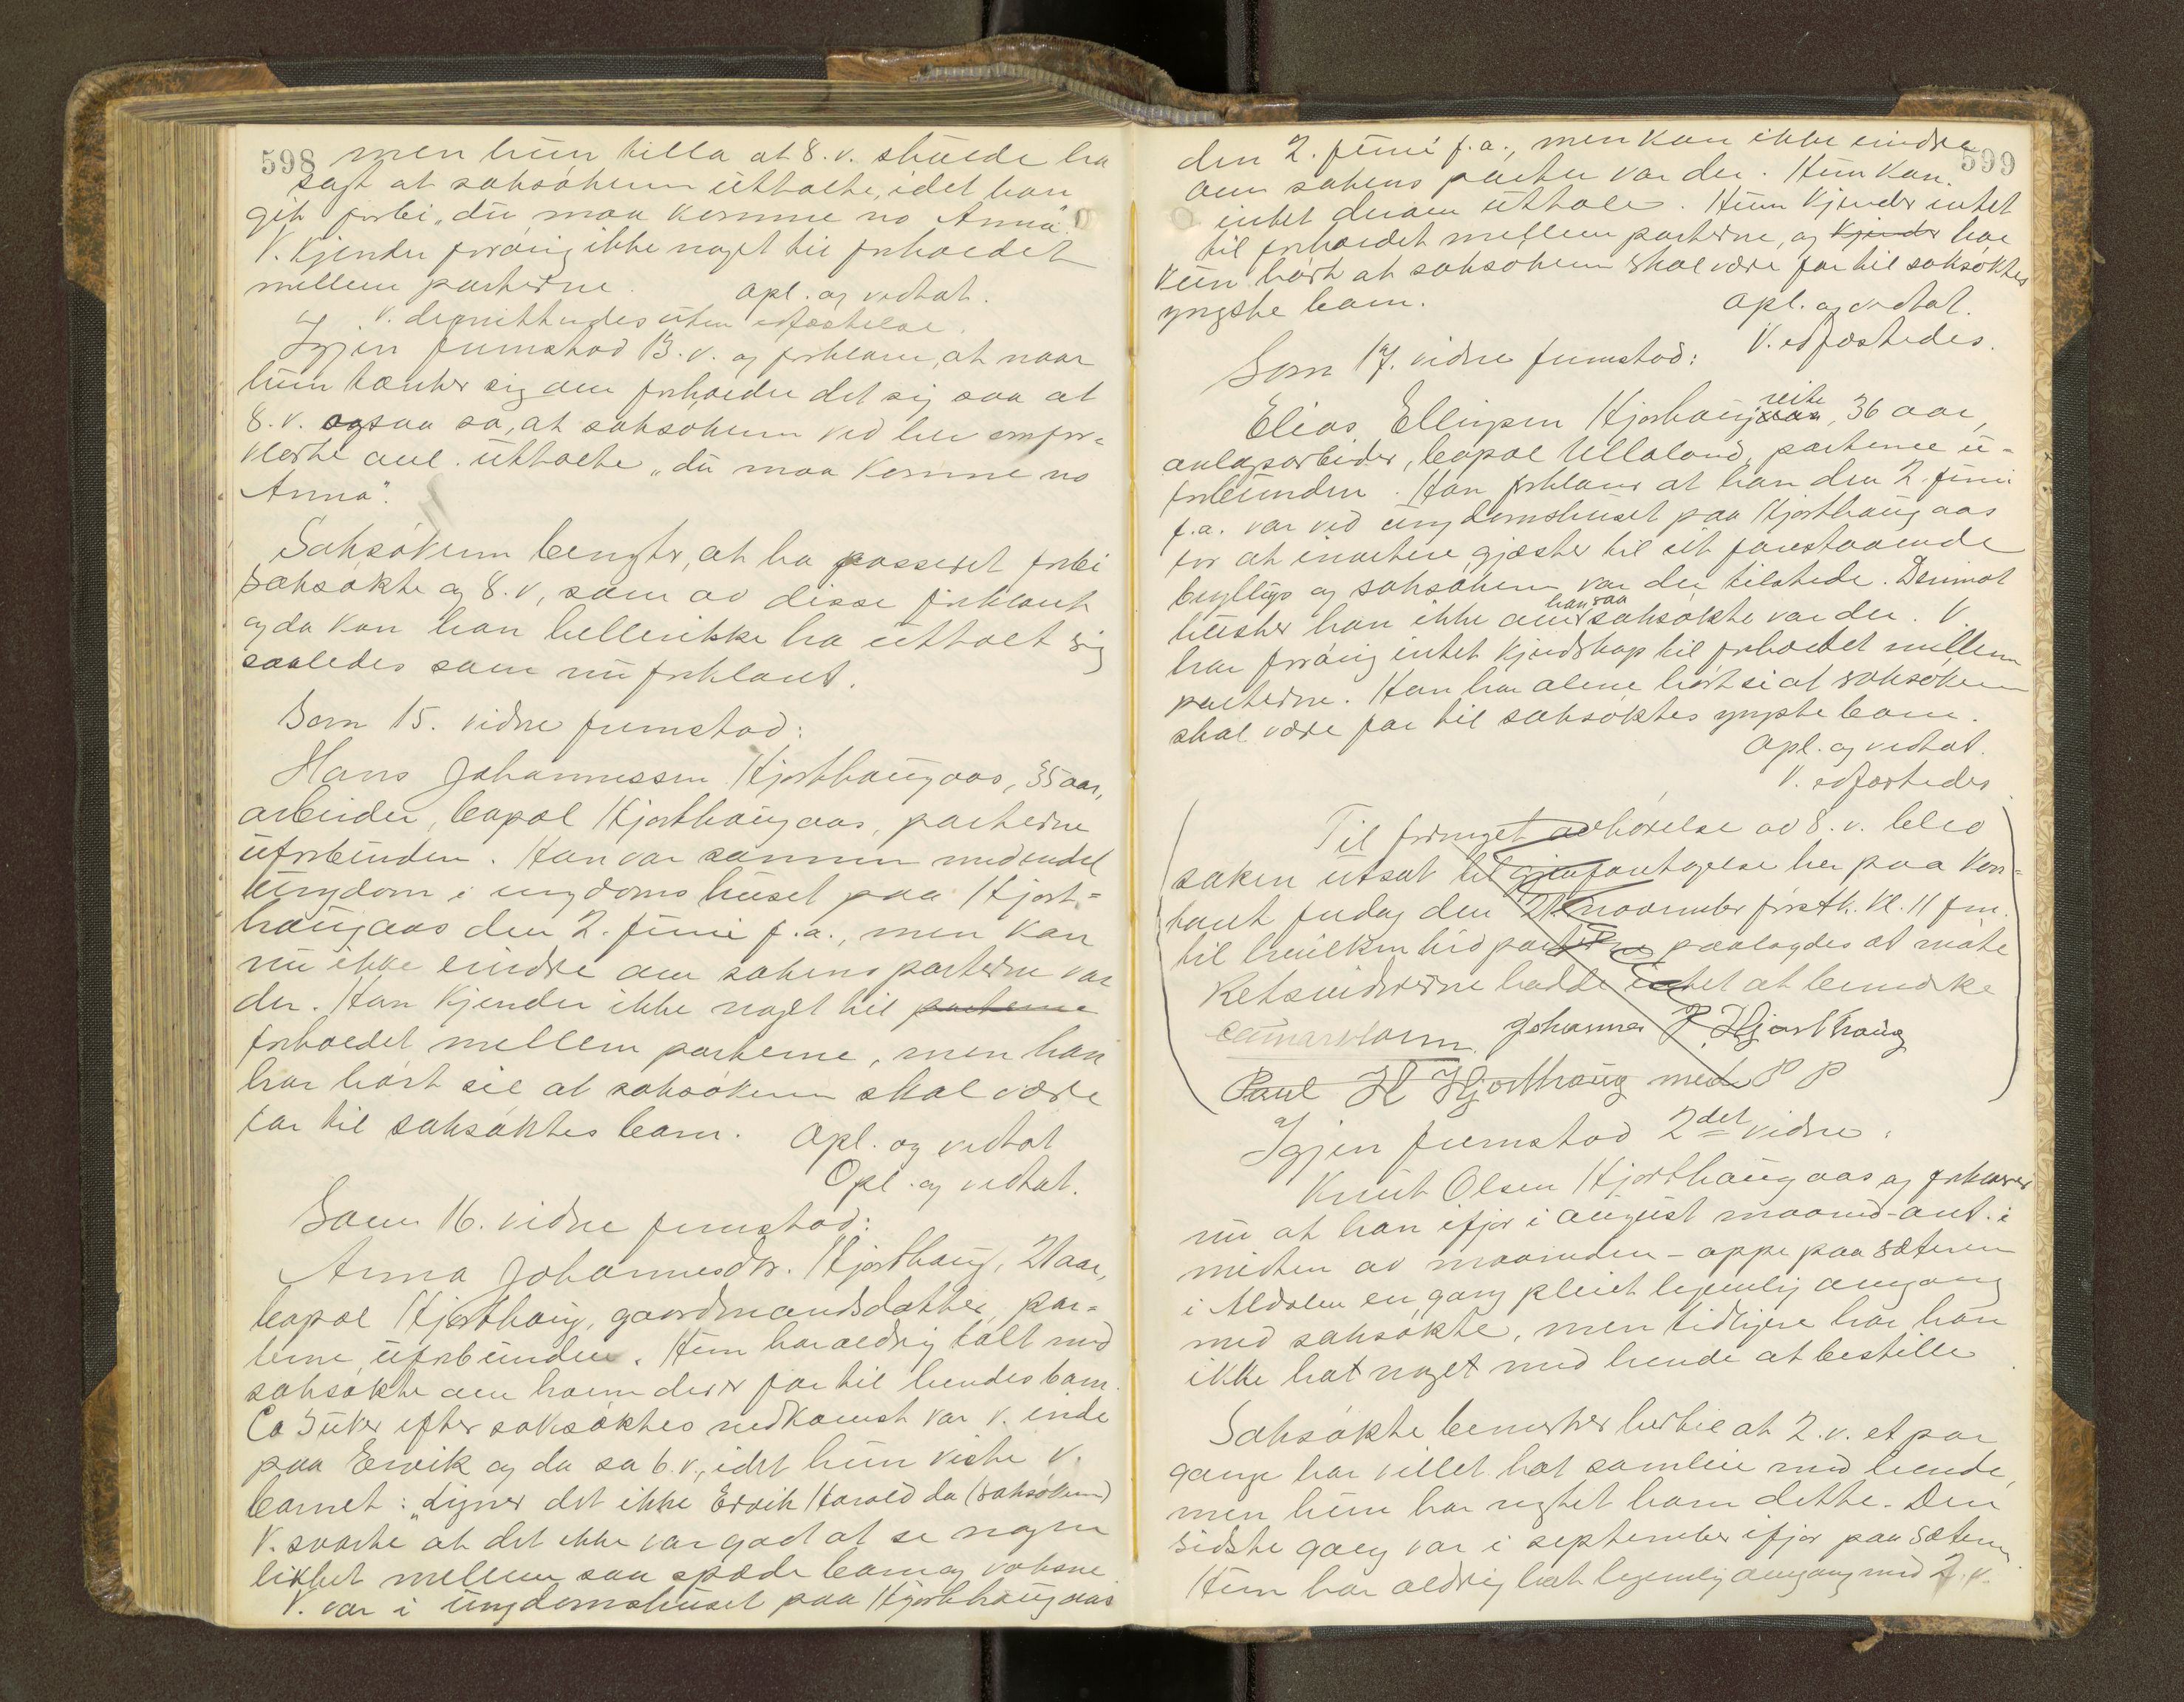 598
men hun tilla at 8. v. skulde ha
sagt at saksökeren uttalte, idet han
gik forbi „du maa komme no Anna".
V. kjender forövrig ikke noget til forholdet
mellem parterne. Opl. og vedtat.
V. demittertes uten edfæstelse.
Igjen fremstod 13. v. og forklarer, at naar
hun tænker sig om forholder det sig saa at
8. v. ogsaa sa, at saksökeren ved her omfor-
klarte anl. uttalte „du maa komme no
Anna".
Saksökeren benegter, at ha passeret forbi
saksökte og 8. v, som av disse forklart
og da kan han heller ikke ha uttalt sig
saaledes som nu forklart.
Som 15. vidne fremstod:
Hans Johannessen Hjorthaugaas, 35 aar,
arbeider, bopæl Hjorthaugaas, parterne
uforbunden. Han var sammen med endel
ungdom i ungdomshuset paa Hjort-
haugaas den 2. juni f.a., men kan
nu ikke erindre om sakens parter var
der. Han kjender ikke noget til parterne
forholdet mellem parterne, men han
har hört sie at saksökeren skal være
far til saksöktes barn. Opl. og vedtat
Opl. og vedtat.
Som 16. vidne fremstod:
Anna Johannesdtr. Hjorthaug, 21 aar,
bopæl Hjorthaug, gaardmandsdatter, par-
terne uforbunden. Hun har aldrig talt med
saksökte om hvem der er far til hendes barn.
Ca 3 uker efter saksöktes nedkomst var v. inde
paa Ervik og da sa 6. v., idet hun viste v.
barnet: „ligner det ikke Ervik Harald da (saksökeren)
V. svarte at det ikke var godt at se nogen
likhet mellem saa spæde barn og voksne
V. var i ungdomshuset paa Hjorthaugaas
599
den 2. juni f.a., men kan ikke erindre
om sakens parter var der. Hun kan
intet derom uttale. Hun kjender intet
til forholdet mellem parterne, og kjender har
kun hört at saksökeren skal være far til saksöktes
yngste barn. Opl. og vedtat.
V. edfæstedes.
Som 17. vidne fremstod:
Elias Ellingsen Hjorthaugreite, 36 aar,
anlægsarbeider, bopæl Ulleland, parterne u-
forbunden. Han forklarer at han den 2. juni
f.a. var ved ungdomshuset paa Hjorthaugaas
for at invitere gjæster til sit forestaaende
bryllup og saksökeren var der tilstede. Derimot
husker han ikke om han saa saksökte var der. V.
har forövrig intet kjendskap til forholdet mellem
parterne. Han har alene hört si at saksökeren
skal være far til saksöktes yngste barn.
Opl. og vedtat.
V. edfæstedes
Til fornyet avhörelse av 8. v. blev
saken utsat til gjenfortagelse her paa kon-
toret fredag den 21. november förstk. kl. 11 fm.
til hvilken tid parterne paalagdes at möte
Retsvidnerne hadde intet at bemerke
Johannes P. Hjorthaug
Paul H Hjorthaug med P P
Igjen fremstod 2det vidne:
Knut Olsen Hjorthaugaas og forklarer
nu at han ifjor i august maaned - ant. i
midten av maaneden - oppe paa sæteren
i Aldalen en gang pleiet legemlig omgang
med saksökte, men tidligere har han
ikke hat noget med hende at bestille
Saksökte bemerker hertil at 2. v. et par
gange har villet hat samleie med hende,
men hun har negtet ham dette. Den
sidste gang var i september ifjor paa sæteren.
Hun har aldrig hat legemlig omgang med 2. v.